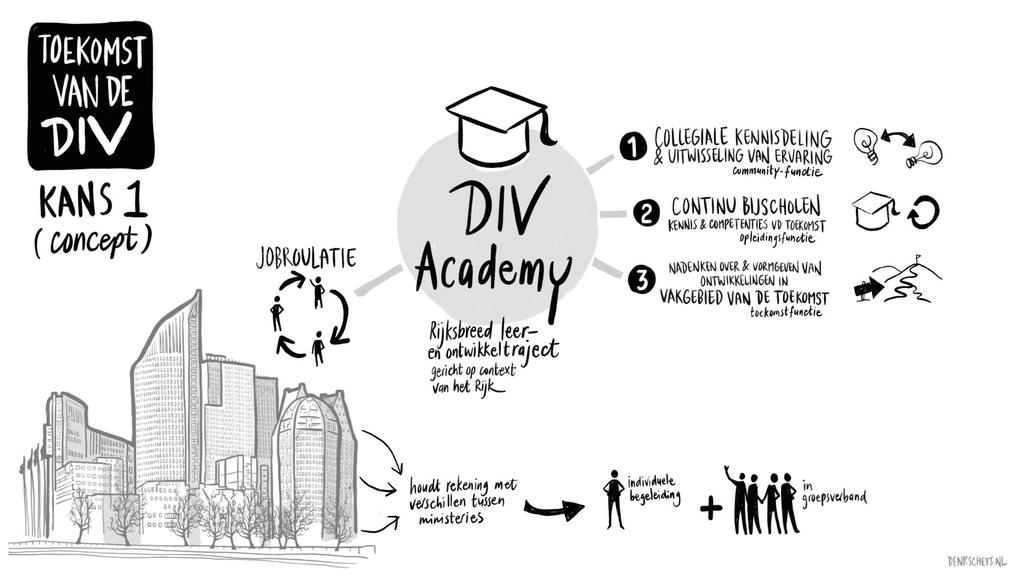 TOEKOMST
VAN DE
DIV
KANS 1
(concept)
JOBROULATIE
DIV
Academy
Rijksbreed leer-
en ontwikkeltraject
gericht op context
van het Rijk
1 COLLEGIALE KENNISDELING
& UITWISSELING VAN ERVARING
community-functie
2 CONTINU BIJSCHOLEN
KENNIS & COMPETENTIES VD TOEKOMST
opleidingsfunctie
3 NADENKEN OVER & VORMGEVEN VAN
ONTWIKKELINGEN IN
VAKGEBIED VAN DE TOEKOMST
toekomstfunctie
houdt rekening met
verschillen tussen
ministeries
individuele
begeleiding
+
in
groepsverband
DENKSCHETS.NL